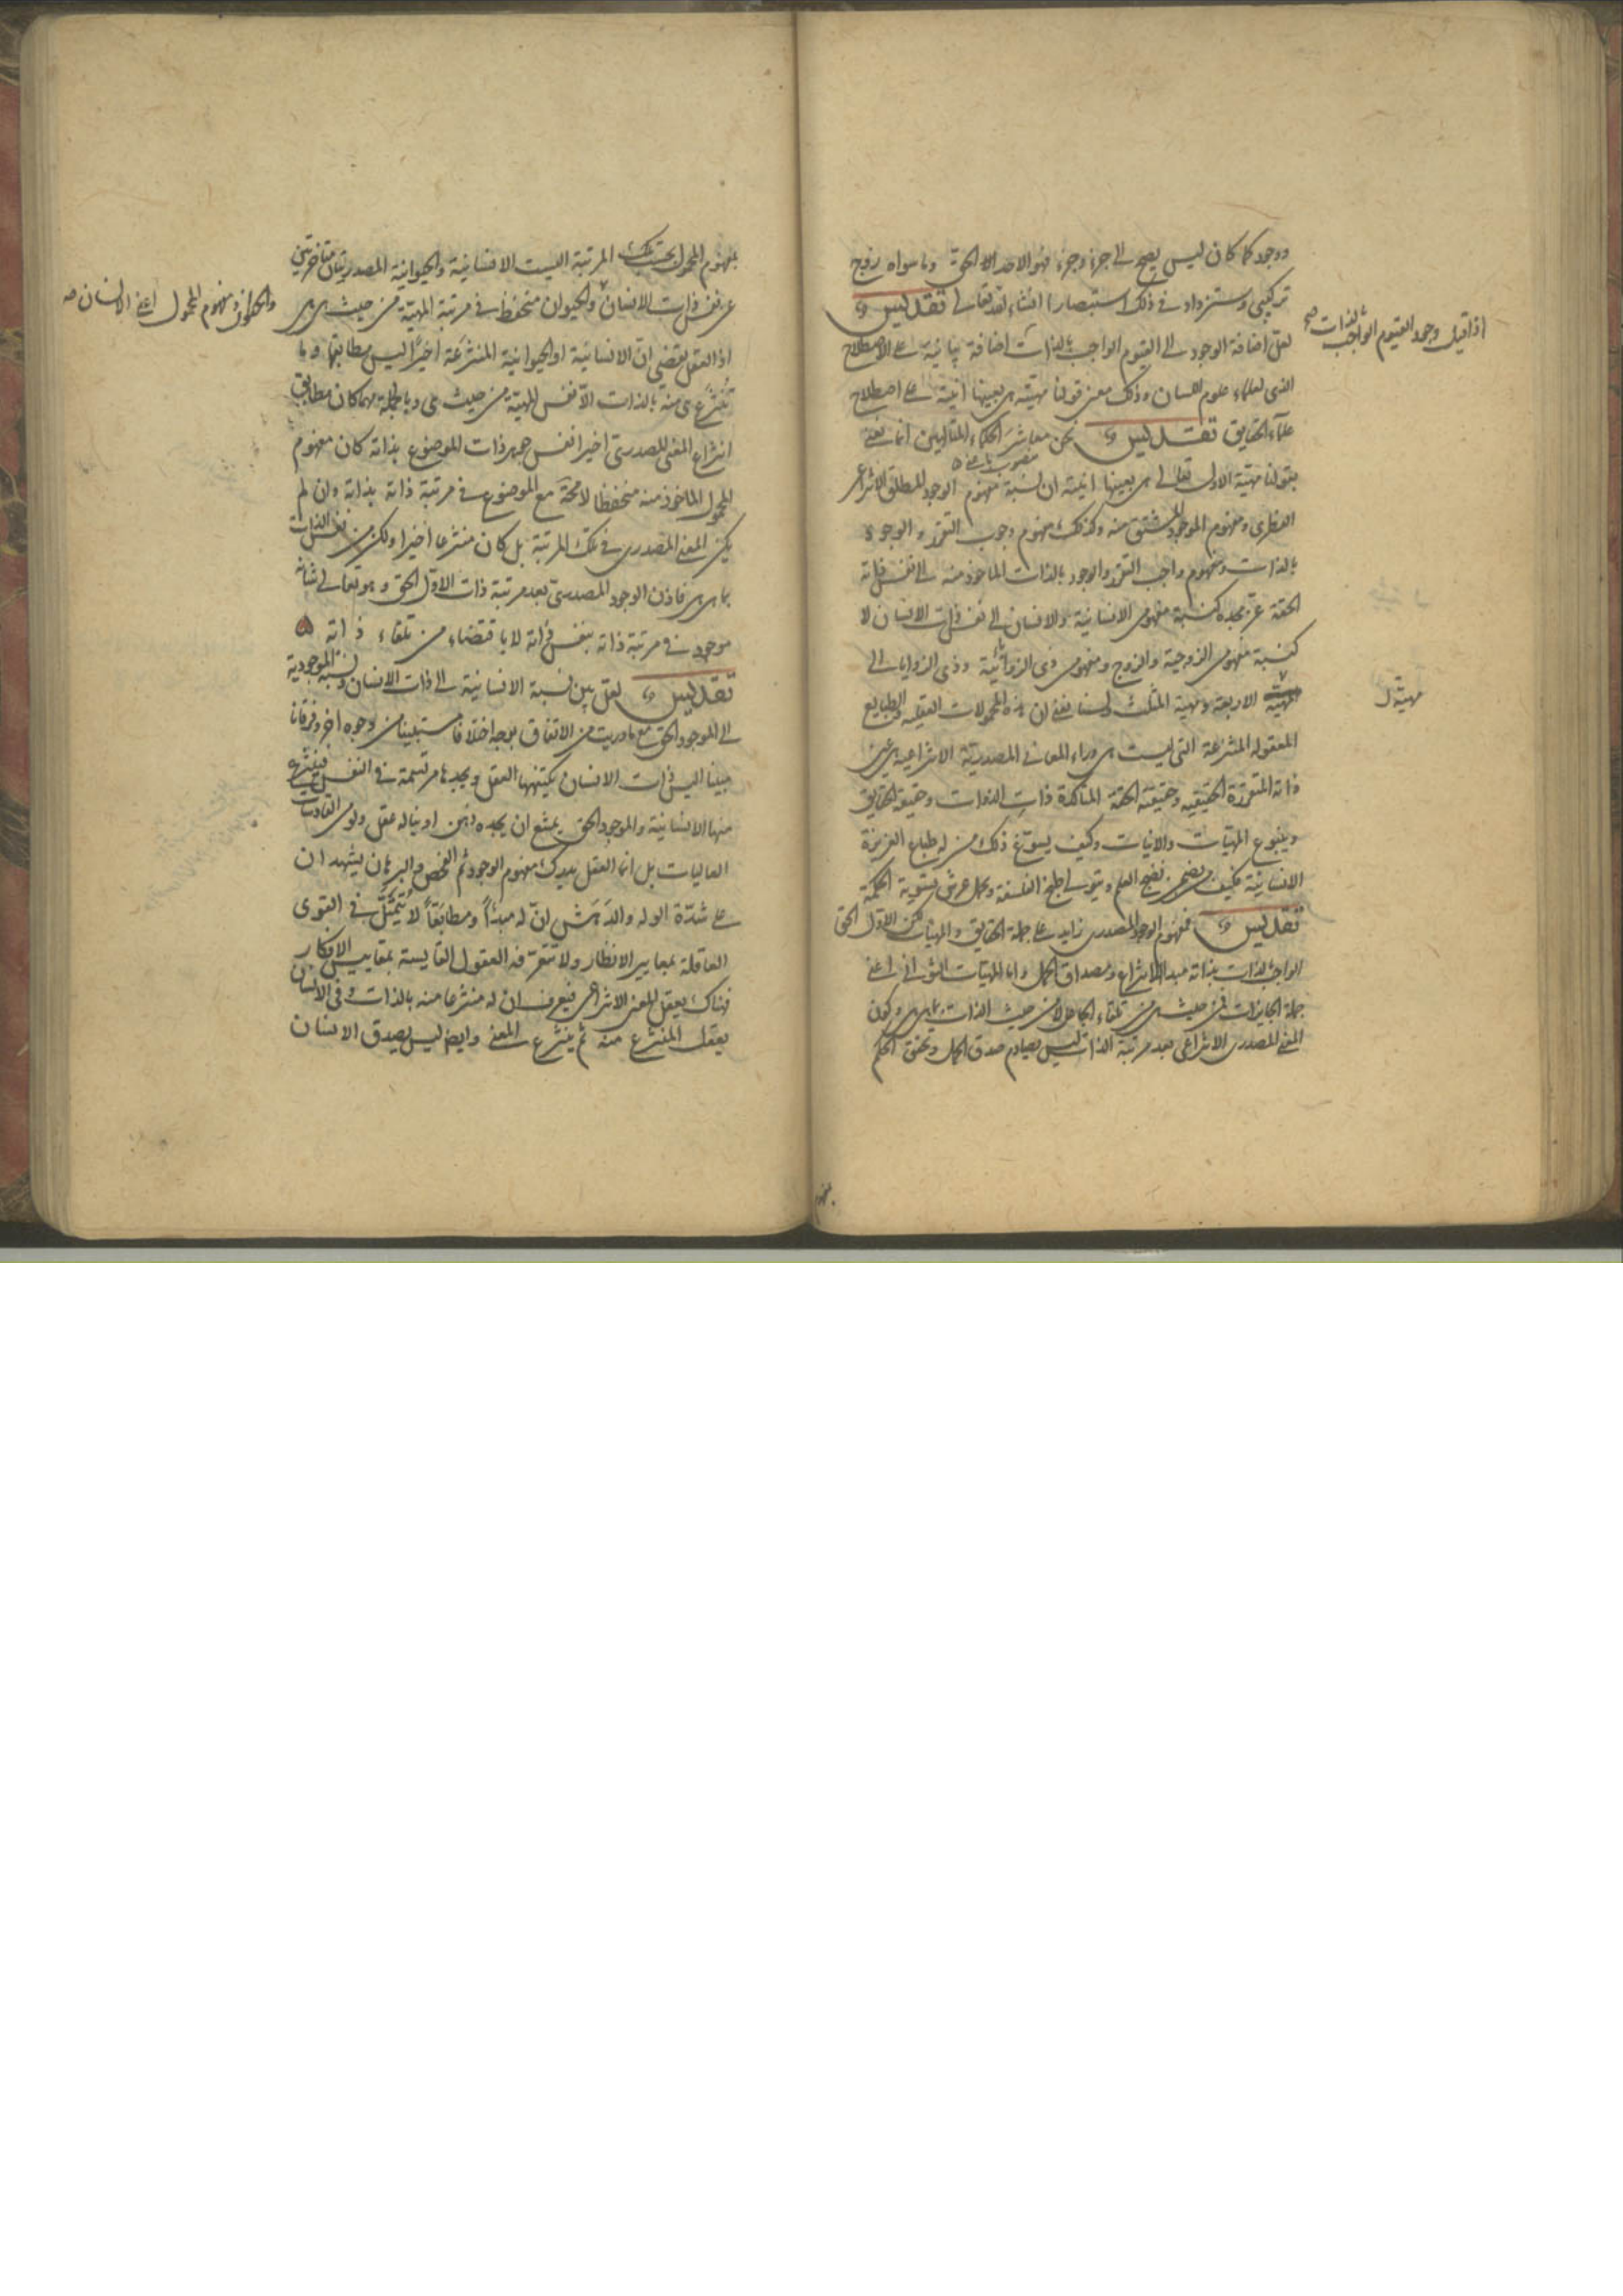 ووجود كما كان ليس يصح الى جزء وجزء فهو الاحد الا الحق وما سواه زوج
تركيبي وستزداد في ذلك استبصارا انشاء الله تعالى تقديس
لعل اضافة الوجود الى القيوم الواجب بالذات اضافة بيانية على الاصطلاح
اذا قيل وجود القيوم الواجب بالذات صح
الذى لعلماء علوم اللسان وذلك معنى قولنا مهيته هى بعينها انيته على اصطلاح
علماء الحقايق تقديس نحن معاشر الحكماء المتالهين انما نعنى
بقولنا مهيّة الاول تعالى هى بعينها انيته ان نسبة مفهوم الوجود المطلق الانتزاعى
الفطرى ومفهوم الموجود المشتق منه وكذلك مفهوم وجوب التقرر والوجود
بالذات ومفهوم واجب التقرر والوجود بالذات الماخوذ منه الى نفس ذاته
الحقة عز مجده كنسبة مفهومى الانسانية والانسان الى نفس ذات الانسان لا
كنسبة مفهومى الزوجية والزوج ومفهومى ذى الزوائية وذى الزوايا الى
مهية الاربعة ومهية المثلث ولسنا نعنى ان هذه المحمولات العقليه والطبايع
مهيّة ل
المعقوله المنتزعة التى ليست هى وراء المعانى المصدرية الانتزاعيه هى عين
ذاته المتقررة الحقيقيه وحقيقته الحقة المتاكدة ذات الذوات وحقيقة الحقايق
وينبوع المهيات والانيات وكيف يسوّغ ذلك من له طباع الغريزة
الانسانية فكيف من نضج العلم وتولى طبخ الفلسفة وحمل عرش تسوية الحكمة
تقديس فمفهوم الوجود المصدرى زايد على جملة الحقايق والمهيات لكن الاول الحق
الواجب بالذات بذاته مبدا الانتزاع ومصداق الحمل واما المهيات الثوانى اعنى
جملة الجايزات فمن حيث هى من تلقاء الجاعل لا من حيث الذات بما هى هى وكون
المعنى المصدرى الانتزاعى بعد مرتبة الذات ليس يصادم صدق الحمل وتحقق الحكم
بمفهوم
بمفهوم المحمول بحسب تلك المرتبة اليست الانسانية والحيوانية المصدريتان متاخرتين
عن نفس ذات الانسان والحيوان منحفظا فى مرتبة المهيّة من حيث هى هى
والحيوان ومفهوم المحمول اعنى الانسان صه
اذ العقل يقضى انّ الانسانية او الحيوانية المنتزعة اخيرًا ليس مطابقها وما
تُنتزع هى منه بالذات الّا نفس المهيّة من حيث هى وبالجملة مهما كان مطابق
انتزاع المعنى المصدرى اخيرا نفس جوهر ذات الموضوع بذاته كان مفهوم
المحمول الماخوذ منه منحفظا لا محّة مع الموضوع فى مرتبة ذاته بذاته وان لم
يكن المعنى المصدرى فى تلك المرتبة بل كان منتزعا اخيرا ولكن من نفس الذات
بما هى هى فاذن الوجود المصدرى بعد مرتبة ذات الاول الحق وهو تعالى شانه
موجود فى مرتبة ذاته بنفس ذاته لا باقتضاء من تلقاء ذاته
تقديس لعل بين نسبة الانسانية الى ذات الانسان ونسبة الموجودية
الى الموجود الحق مع ما دريت من الاتفاق بوجه اختلافا ستبيناه من وجوه اخر وفرقانا
مبينا اليس ذات الانسان يكتنهها العقل ويجدها مرتسمة فى النفس فينتزع
منها الانسانية والموجود الحق يمتنع ان يجده ذهن او يناله عقل ولو من القادسات
العاليات بل انما العقل يدرك مفهوم الوجود ثم الفحص والبرهان يشهد ان
على شدّة الوله والدَهَش انّ له مبدأً ومطابَقًا لا يُتمثَّل فى القوى
العاقلة بمعايير الانظار ولا تتعرّفه العقول القايسة بمقاييس الافكار
فهناك يعقل المعنى الانتزاعى فيعرف ان له منتزعا منه بالذات وفى الانسان
يعقل المنتزع منه ثم ينتزع المعنى وايض ليس يصدق الانسان